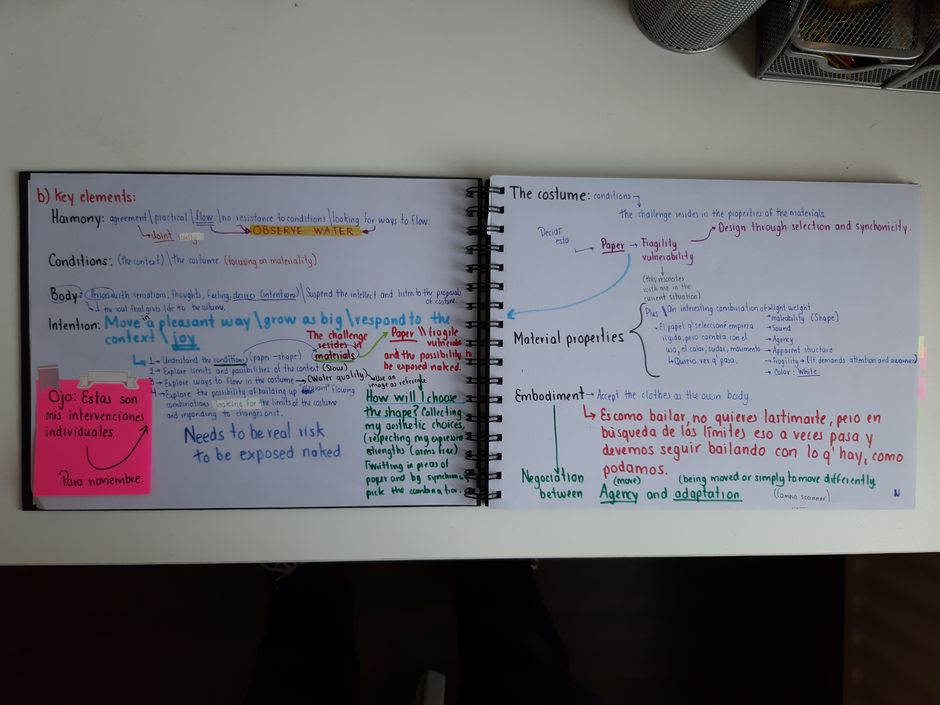 b) Key elements:
Harmony: agreement \ practical \ flow \ no resistance to conditions \ looking for ways to flow.
Joint
OBSERVE WATER
Conditions: (the context) \ the costume (focusing on materiality)
Body: with sensations, thoughts, feeling, desires (intentions) \ Suspend the intellect and listen to the proposal of costume.
the soul that gives life to the costume.
Intention: Move in a pleasant way \ grow as big \ respond to the
context \ joy
The challenge
resides in
materials
Paper \\ fragile
vulnerable
and the possibility to
be exposed naked.
1- Understand the conditions (paper - shape)
2- Explore limits and possibilities of the context (Slow)
3- Explore ways to flow in the costume → (Water quality) use an
image as reference
4- Explore the possibility of building up flowing
combinations looking for the limits of the costume
and responding to changes on it.
Needs to be real risk
to be exposed naked
How will I choose
the shape? Collecting
my aesthetic choices,
(respecting my expressive
strengths (arms free)
Twitting in pieces of
paper and by synchrony
pick the combination.
Ojo: Estas son
mis intervenciones
individuales.
Para noviembre.
The costume: conditions
The challenge resides in the properties of the materials
Decidí
esto
Paper → Fragility
vulnerability
Design through selection and synchonicity.
(this resonates
with me in the
current situation)
Material properties
Plus \ An interesting combination of light weight
• maleability (Shape)
• El papel q' seleccioné empieza
rígido, pero cambia con el
uso, el calor, sudor, movimiento
Quiero ver q' pasa.
→ Sound
→ Agency
→ Apparent structure
→ Fragility → (It demands attention and awareness)
→ Color: White
Embodiment → Accept the clothes as the own body.
Es como bailar, no quieres lastimarte, pero en
búsqueda de los límites eso a veces pasa y
devemos seguir bailando con lo q' hay, como
podamos.
Negociation
between
(move)
(being moved or simply to move differently
Agency and adaptation
(camra scanner)